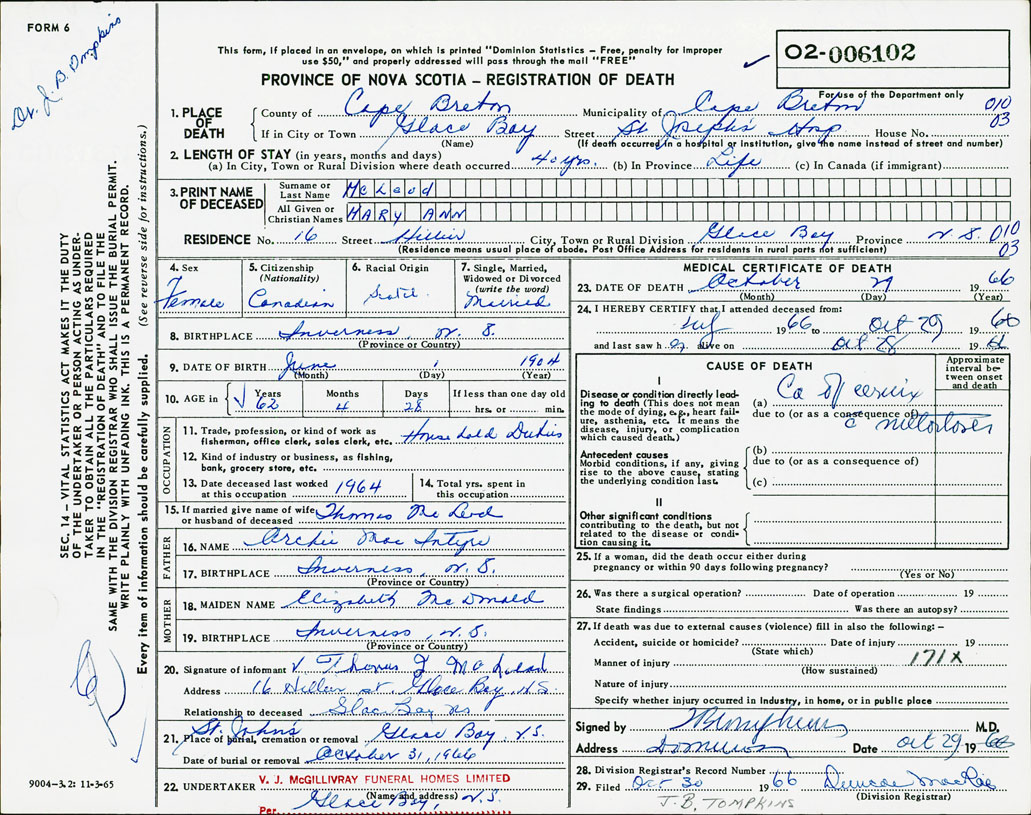 FORM 6
Dr. J. B. Tompkins
This form, if placed in an envelope, on which is printed "Dominion Statistics – Free, penalty for improper
use $50," and properly addressed will pass through the mail "FREE"
PROVINCE OF NOVA SCOTIA – REGISTRATION OF DEATH
02-006102
For use of the Department only
010
03
1. PLACE OF DEATH
County of Cape Breton Municipality of Cape Breton
If in City or Town Glace Bay Street St Joseph's Hosp House No.
(Name) (If death occurred in a hospital or institution, give the name instead of street and number)
2. LENGTH OF STAY (in years, months and days)
(a) In City, Town or Rural Division where death occurred 40 yrs. (b) In Province Life (c) In Canada (if immigrant)
3. PRINT NAME OF DECEASED
Surname or Last Name McLeod
All Given or Christian Names MARY ANN
RESIDENCE No. 16 Street City, Town or Rural Division Glace Bay Province N.S. 010
03
(Residence means usual place of abode. Post Office Address for residents in rural parts not sufficient)
4. Sex
Female
5. Citizenship
(Nationality)
Canadian
6. Racial Origin
Scotch
7. Single, Married,
Widowed or Divorced
(write the word)
Married
8. BIRTHPLACE Inverness, N. S.
(Province or Country)
9. DATE OF BIRTH June 1 1904
(Month) (Day) (Year)
10. AGE in Years Months Days If less than one day old
62 4 28 hrs. or min.
OCCUPATION
11. Trade, profession, or kind of work as
fisherman, office clerk, sales clerk, etc. Household Duties
12. Kind of industry or business, as fishing,
bank, grocery store, etc.
13. Date deceased last worked
at this occupation 1964
14. Total yrs. spent in
this occupation
15. If married give name of wife
or husband of deceased Thomas McLeod
FATHER
16. NAME Archie MacIntyre
17. BIRTHPLACE Inverness, N.S.
(Province or Country)
MOTHER
18. MAIDEN NAME Elizabeth McDonald
19. BIRTHPLACE Inverness, N.S.
(Province or Country)
20. Signature of informant Thomas J McLeod
Address 16 st. Glace Bay, N.S.
Relationship to deceased Glace Bay NS
21. Place of burial, cremation or removal St. John's Glace Bay, N.S.
Date of burial or removal October 31, 1966
22. UNDERTAKER V. J. McGILLIVRAY FUNERAL HOMES LIMITED
(Name and address)
Glace Bay, N.S.
Per
MEDICAL CERTIFICATE OF DEATH
23. DATE OF DEATH October 29 1966
(Month) (Day) (Year)
24. I HEREBY CERTIFY that I attended deceased from:
1966 to Oct 29 1966
and last saw her alive on Oct 28 19
CAUSE OF DEATH
Approximate
interval between
onset
and death
I
Disease or condition directly leading
to death (This does not mean
the mode of dying, e.g., heart failure,
asthenia, etc. It means the
disease, injury, or complication
which caused death.)
(a) Ca of cervix
due to (or as a consequence of)
Antecedent causes
Morbid conditions, if any, giving
rise to the above cause, stating
the underlying condition last.
(b)
due to (or as a consequence of)
(c)
II
Other significant conditions
contributing to the death, but not
related to the disease or condition
causing it.
25. If a woman, did the death occur either during
pregnancy or within 90 days following pregnancy?
(Yes or No)
26. Was there a surgical operation? Date of operation 19
State findings Was there an autopsy?
27. If death was due to external causes (violence) fill in also the following: –
Accident, suicide or homicide? Date of injury 19
(State which)
Manner of injury 171X
(How sustained)
Nature of injury
Specify whether injury occurred in industry, in home, or in public place
Signed by M.D.
Address Dominion Date Oct 29 1966
28. Division Registrar's Record Number
29. Filed Oct 30 1966 Duncan MacRae
(Division Registrar)
J.B. TOMPKINS
SEC. 14 – VITAL STATISTICS ACT MAKES IT THE DUTY
OF THE UNDERTAKER OR PERSON ACTING AS UNDERTAKER
TO OBTAIN ALL THE PARTICULARS REQUIRED
IN THE "REGISTRATION OF DEATH" AND TO FILE THE
SAME WITH THE DIVISION REGISTRAR WHO SHALL ISSUE THE BURIAL PERMIT.
WRITE PLAINLY WITH UNFADING INK. THIS IS A PERMANENT RECORD.
Every item of information should be carefully supplied. (See reverse side for instructions.)
9004-3.2: 11-3-65